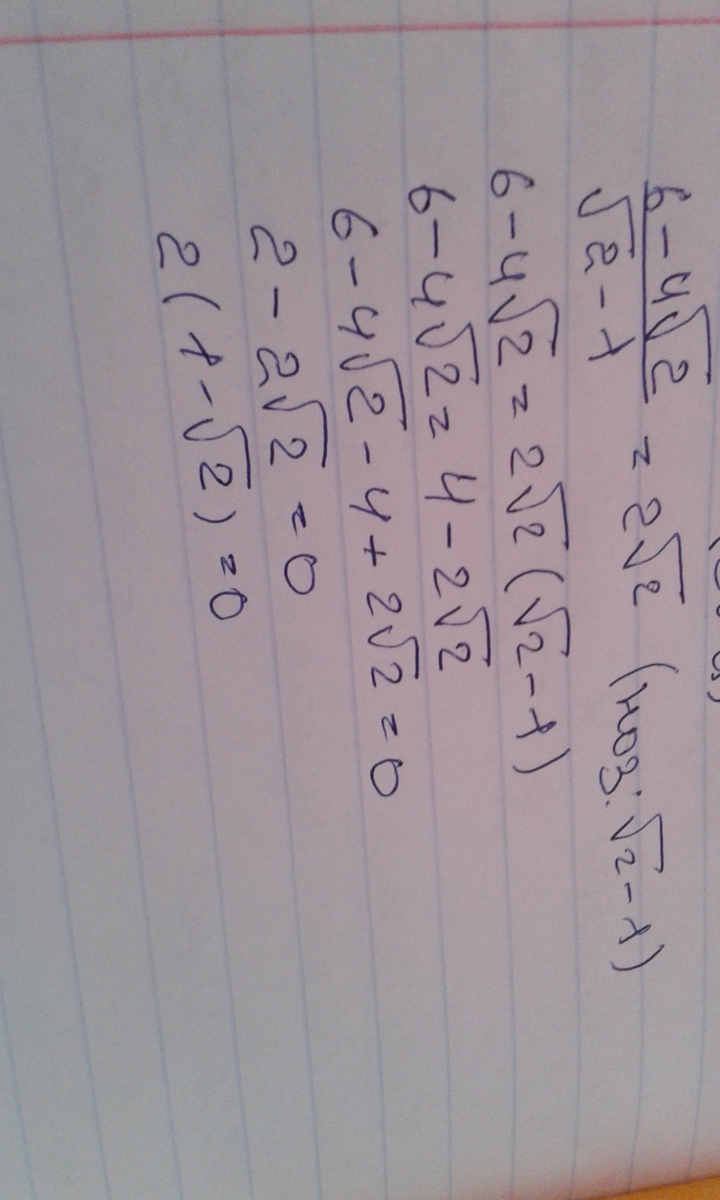 6-4√2 / √2-1 = 2√2 (μοз. √2-1)
6-4√2 = 2√2(√2-1)
6-4√2 = 4-2√2
6-4√2-4+2√2=0
2-2√2=0
2(1-√2)=0